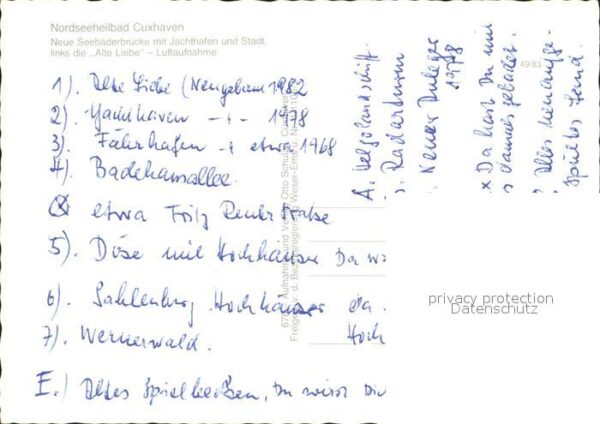 Nordseeheilbad Cuxhaven
Neue Seebäderbrücke mit Jachthafen und Stadt,
links die „Alte Liebe" – Luftaufnahme
49 83
1). Alte Liebe (Neugebaut 1982
2). Yachthaven -"- 1978
3). Fährhafen -"- etwa 1968
4). Badehausallee.
etwa Fritz Reuter Straße
5). Döse mit Hochhäuser Da
6). Sahlenburg Hochhäuser da.
7). Wernerwald. Hoch
E.) Altes Spielkasten, Du wirst
A. Helgolandschiff.
Radarturm
Neuer Anleger
1978
x Da hast Du mit
damals gebadet.
Alles neu aufge-
spültes Land.
Aufnahme und Verlag Otto
Freigeg. d. Bezirksregierung Weser-Ems
privacy protection
Datenschutz